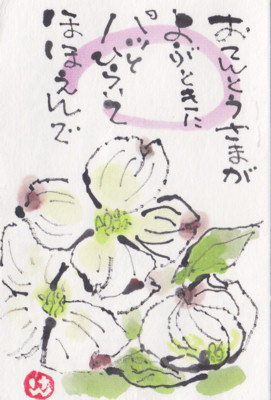 おてんとうさまが
よぶときに
パッとひらいて
ほほえんで